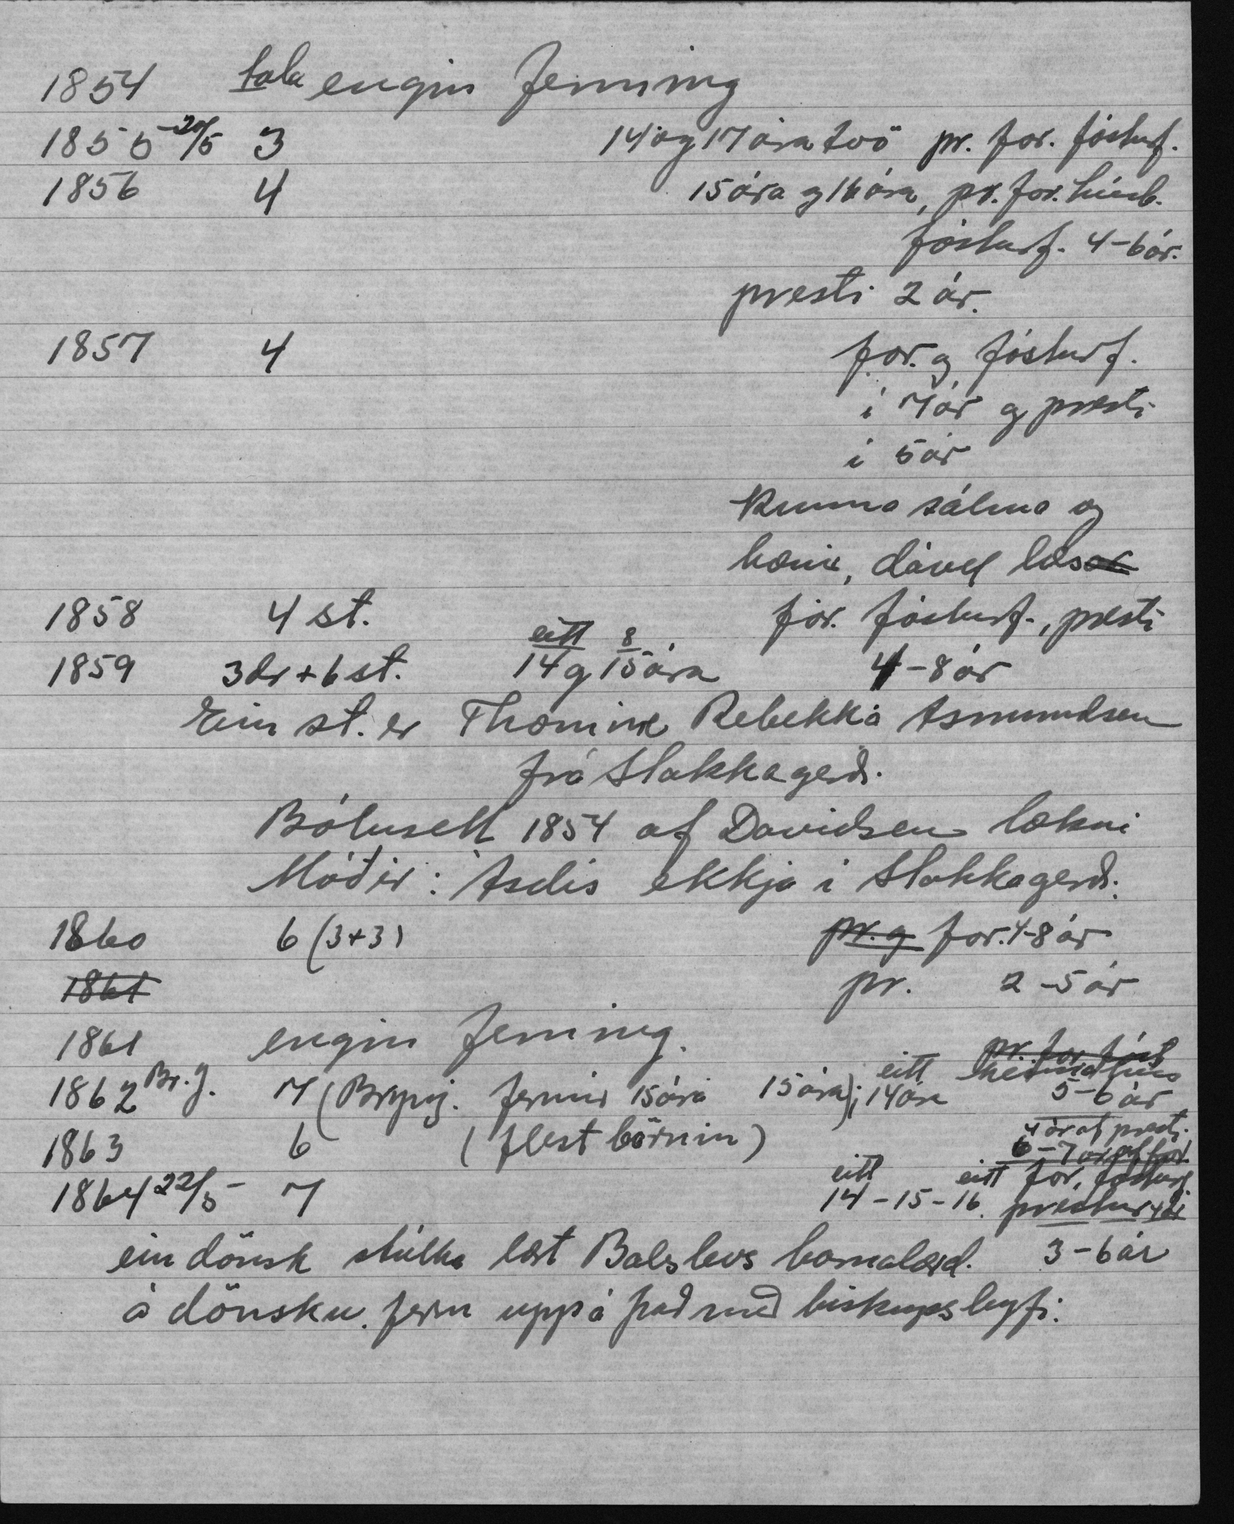 1854 tala engin ferming
1855 20/5 3 14 og 17 ára tvö pr. for. fósturf.
1856 4 15 ára og 16 ára, pr. for. húsb.
fósturf. 4-6 ár.
presti 2 ár.
1857 4 for. og fósturf.
í 7 ár og presti
í 5 ár
kunna sálma og
bænir, dável læs
1858 4 st. for. fósturf., presti
eitt 8
1859 3 dr + 6 st. 14 og 15 ára 4-8 ár
Ein st. er Thomine Rebekka Asmundsen
frá Stakkagerði.
Bólusett 1854 af Davidsen lækni
Móðir: Ásdís ekkja í Stakkagerði.
1860 6 (3+3) pr. og for. 4-8 ár
1861 pr. 2-5 ár
1861 engin ferming.
pr. for. fóst
1862 Br. J. 7 (Brynj. fermir 15 ára 15 ára); eitt 14 ára 5-6 ár
4 ár af presti.
1863 6 (flest börnin) 6-7 ár af for.
eitt eitt for. fósturf
1864 22/5 7 14-15-16. prestur
ein dönsk stúlka lært Balslevs barnalærd. 3-6 ár
á dönsku. ferm uppá það með biskupsleyfi.